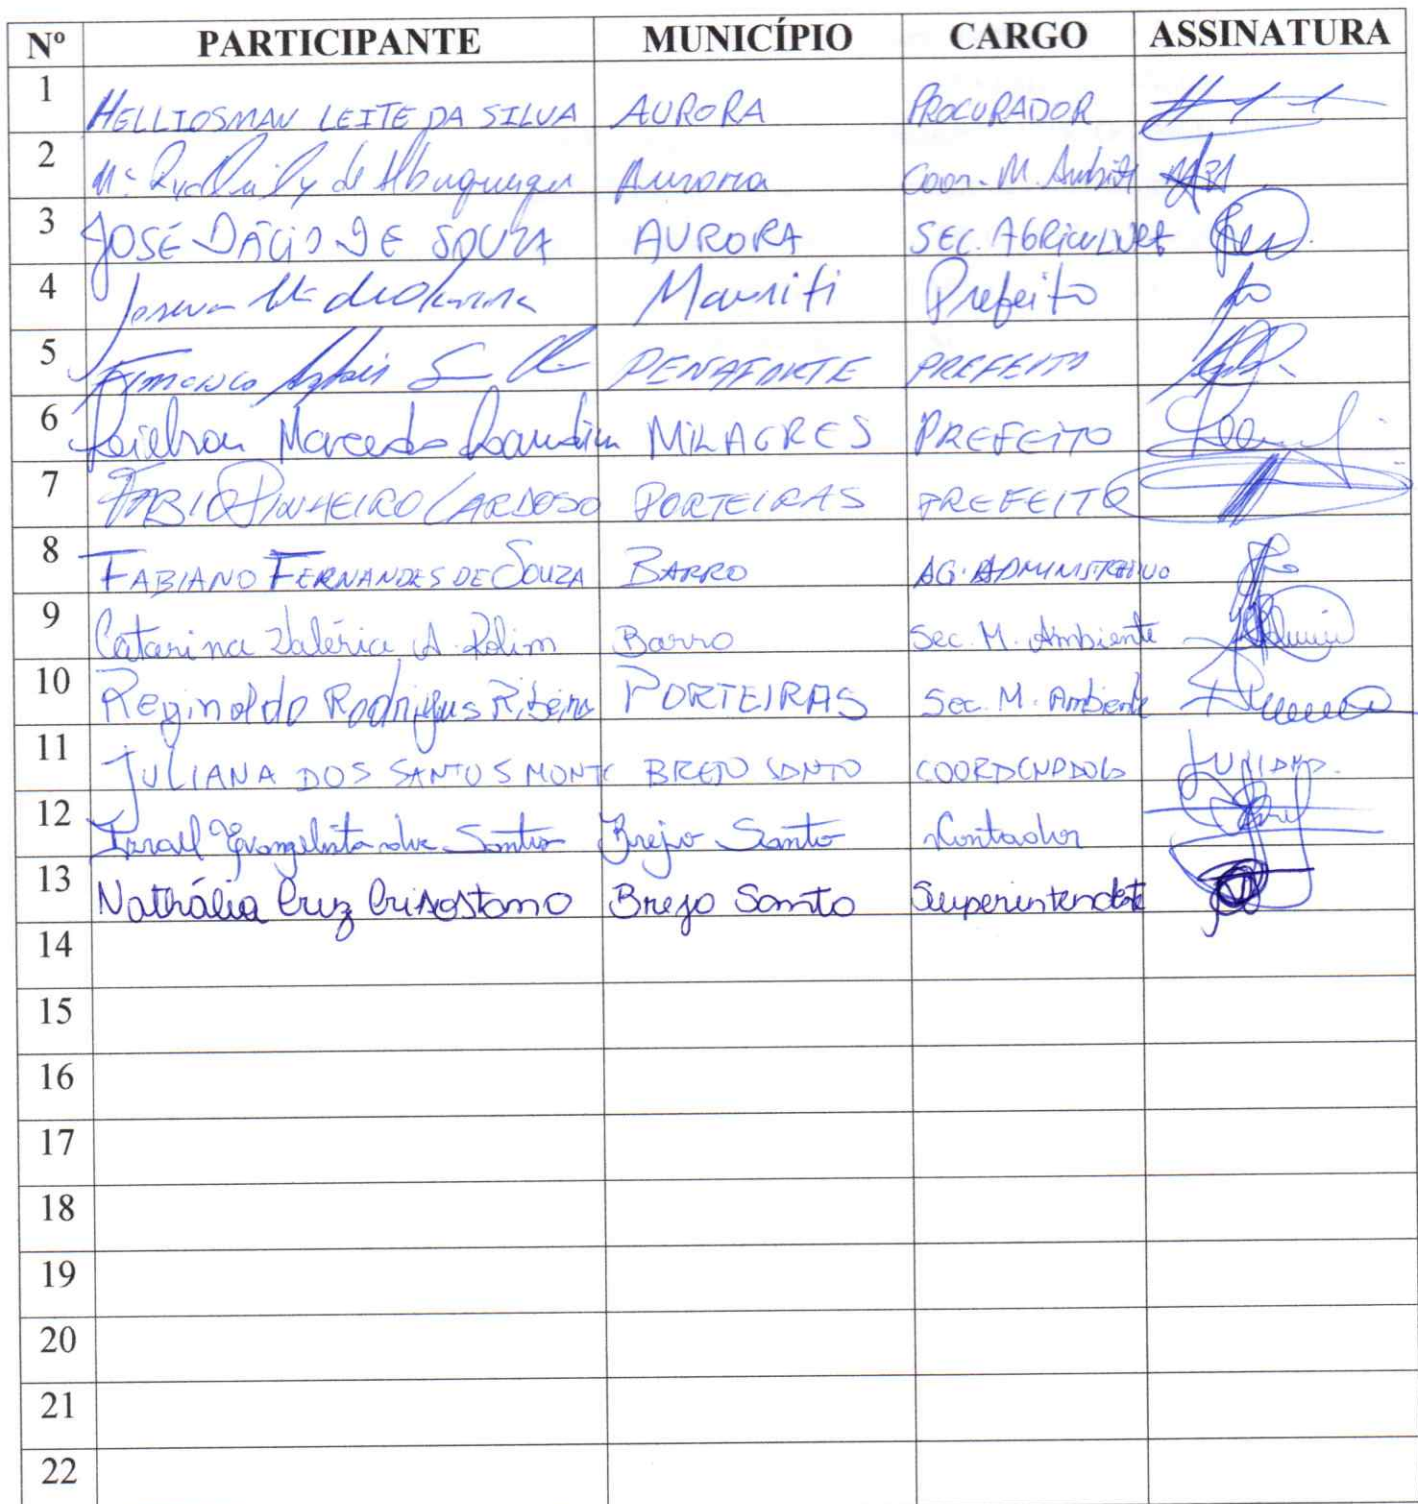 Nº PARTICIPANTE MUNICÍPIO CARGO ASSINATURA
1 HELLIOSMAN LEITE DA SILVA AURORA PROCURADOR
2 Mª de Albuquerque Aurora Coor. M. Ambit
3 JOSÉ DÁCIO DE SOUZA AURORA SEC. AGRICULTURA
4 Mauriti Prefeito
5 Francisco PENAFORTE PREFEITO
6 Macedo MILAGRES PREFEITO
7 FABIO PINHEIRO CARDOSO PORTEIRAS PREFEITO
8 FABIANO FERNANDES DE SOUZA BARRO AG. ADMINISTRATIVO
9 Catarina Valéria A. Rolim Barro Sec. M. Ambiente
10 Reginaldo Rodrigues Ribeiro PORTEIRAS Sec. M. Ambiente
11 JULIANA DOS SANTOS MONTE BREJO SANTO COORDENADORA
12 Israel Evangelista dos Santos Brejo Santo Contador
13 Nathália Cruz Crisostomo Brejo Santo Superintendente
14
15
16
17
18
19
20
21
22